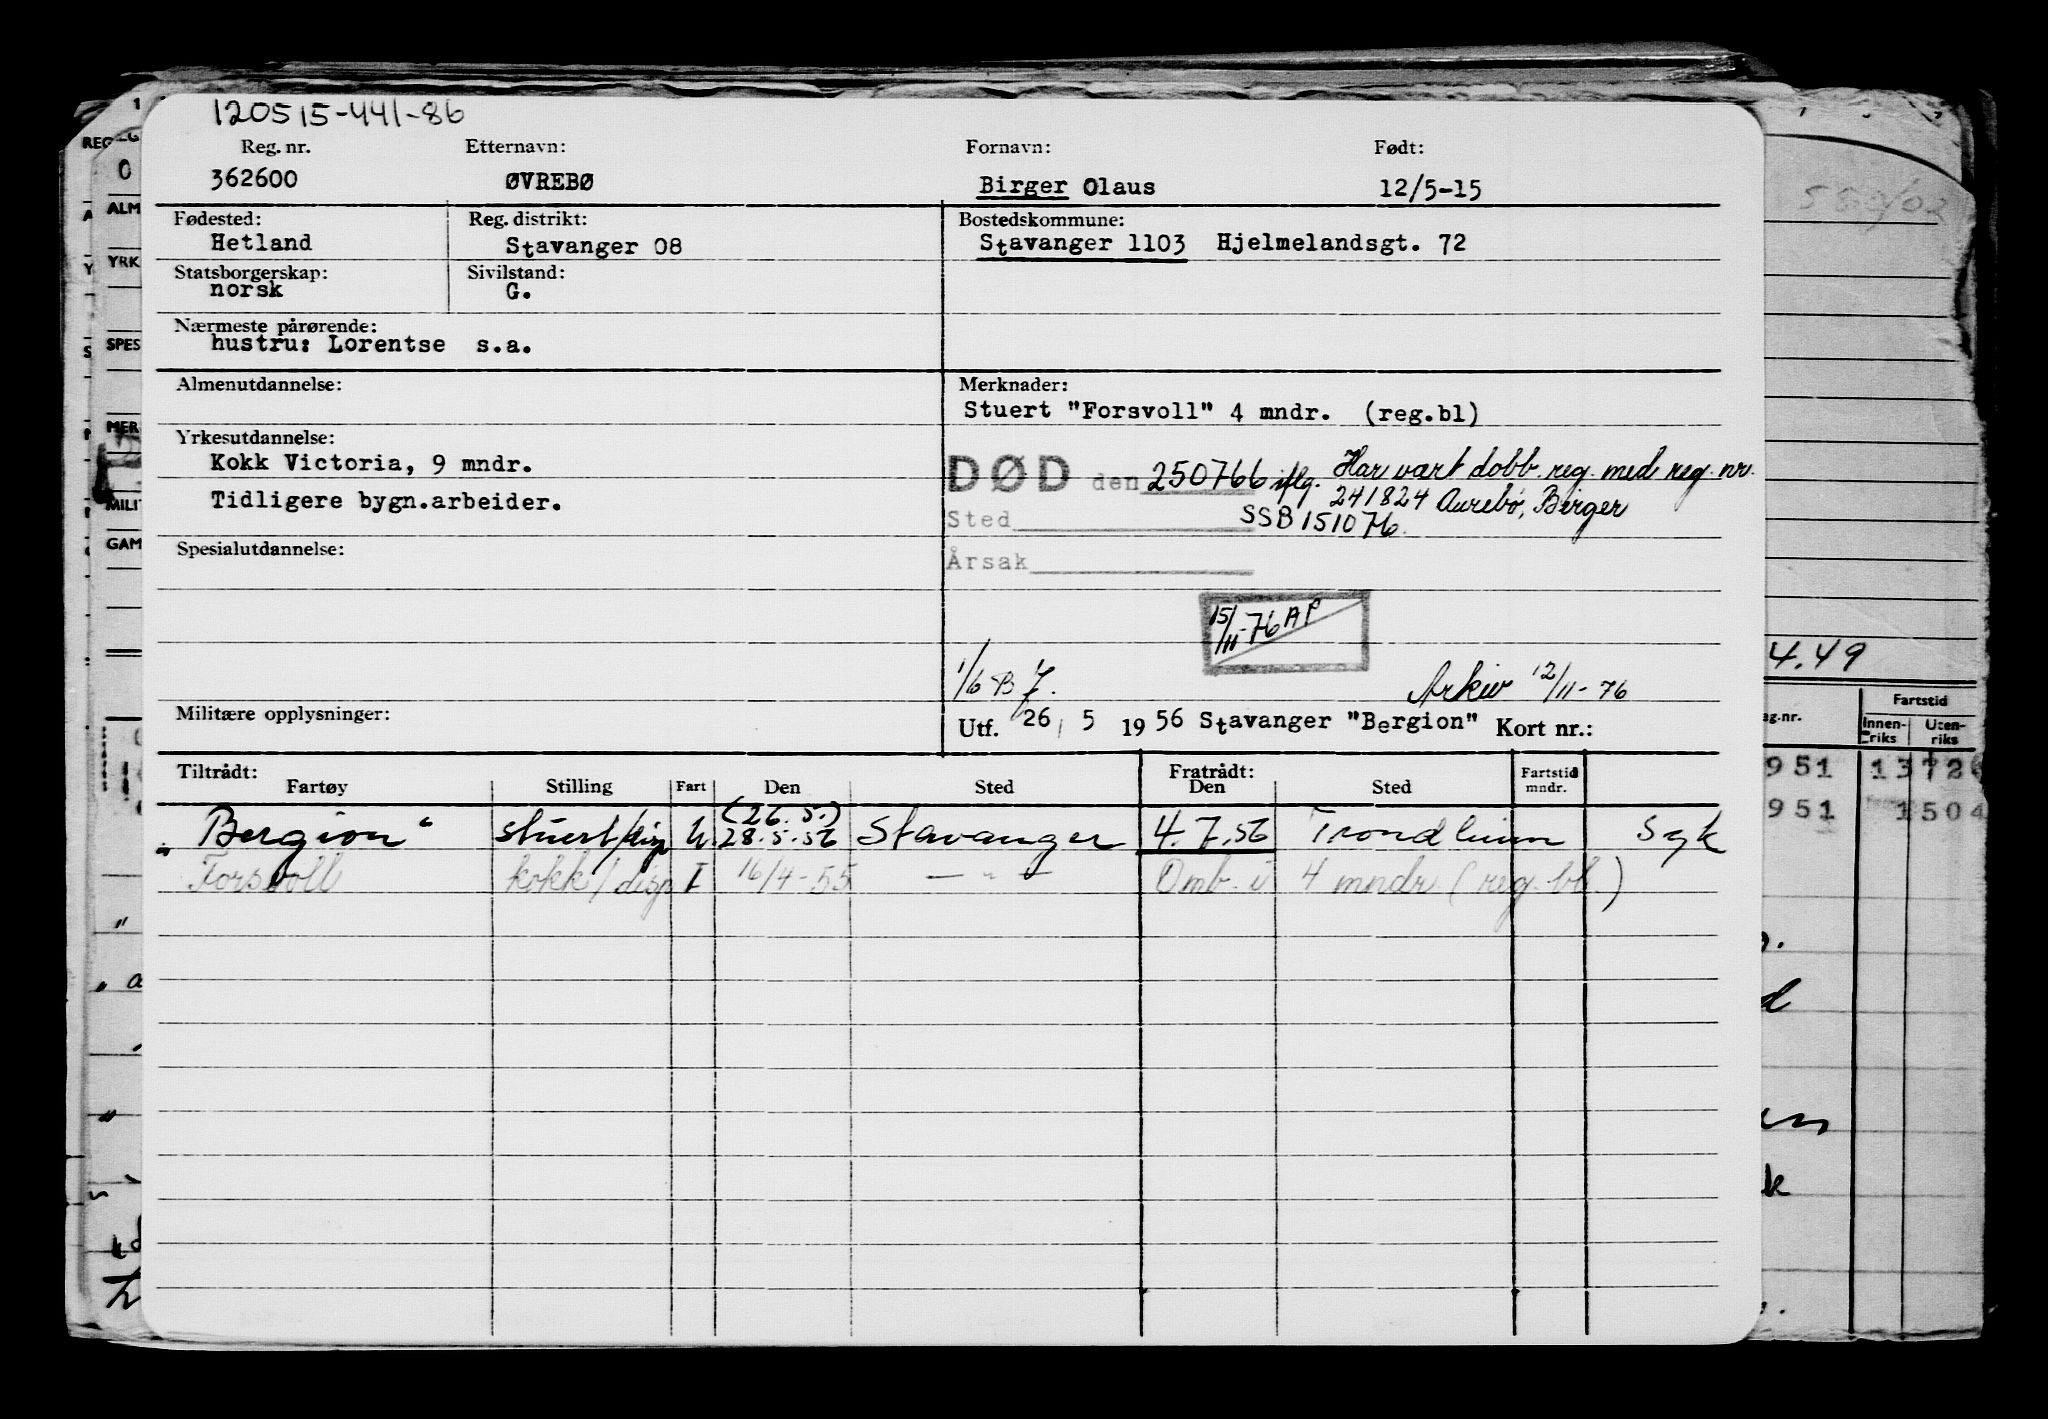 120515-441-86
Reg. nr. Etternavn: Fornavn: Født:
362600 ØVREBØ Birger Olaus 12/5-15
Fødested: Reg. distrikt: Bostedskommune:
Hetland Stavanger 08 Stavanger 1103 Hjelmelandsgt. 72
Statsborgerskap: Sivilstand:
norsk G.
Nærmeste pårørende:
hustru: Lorentse s.a.
Almenutdannelse: Merknader:
Stuert "Forsvoll" 4 mndr. (reg.bl)
Yrkesutdannelse:
Kokk Victoria, 9 mndr.
Tidligere bygn.arbeider.
DØD den 250766 iflg. Har vært dobb. reg. med reg. nr.
241824 Aurebø, Birger
Sted SSB 151076.
Spesialutdannelse:
Årsak
15/11-76 AP
1/6 B
Arkiv 12/11-76
Militære opplysninger:
Utf. 26/ 5 1956 Stavanger "Bergion" Kort nr.:
Tiltrådt: Fratrådt:
Fartøy Stilling Fart Den Sted Den Sted Fartstid mndr.
(26.5.)
"Bergion" stuert/disp U 28.5.56 Stavanger 4.7.56 Trondheim Syk
Forsvoll kokk/disp I 16/4-55 — " — Omb. i 4 mndr. (reg. bl.)
REG
ALM
YRK
SPES
MER
MILI
GAM
580/02
4.49
Fartstid
ag.nr. Innenriks Utenriks
951 13726
951 1504